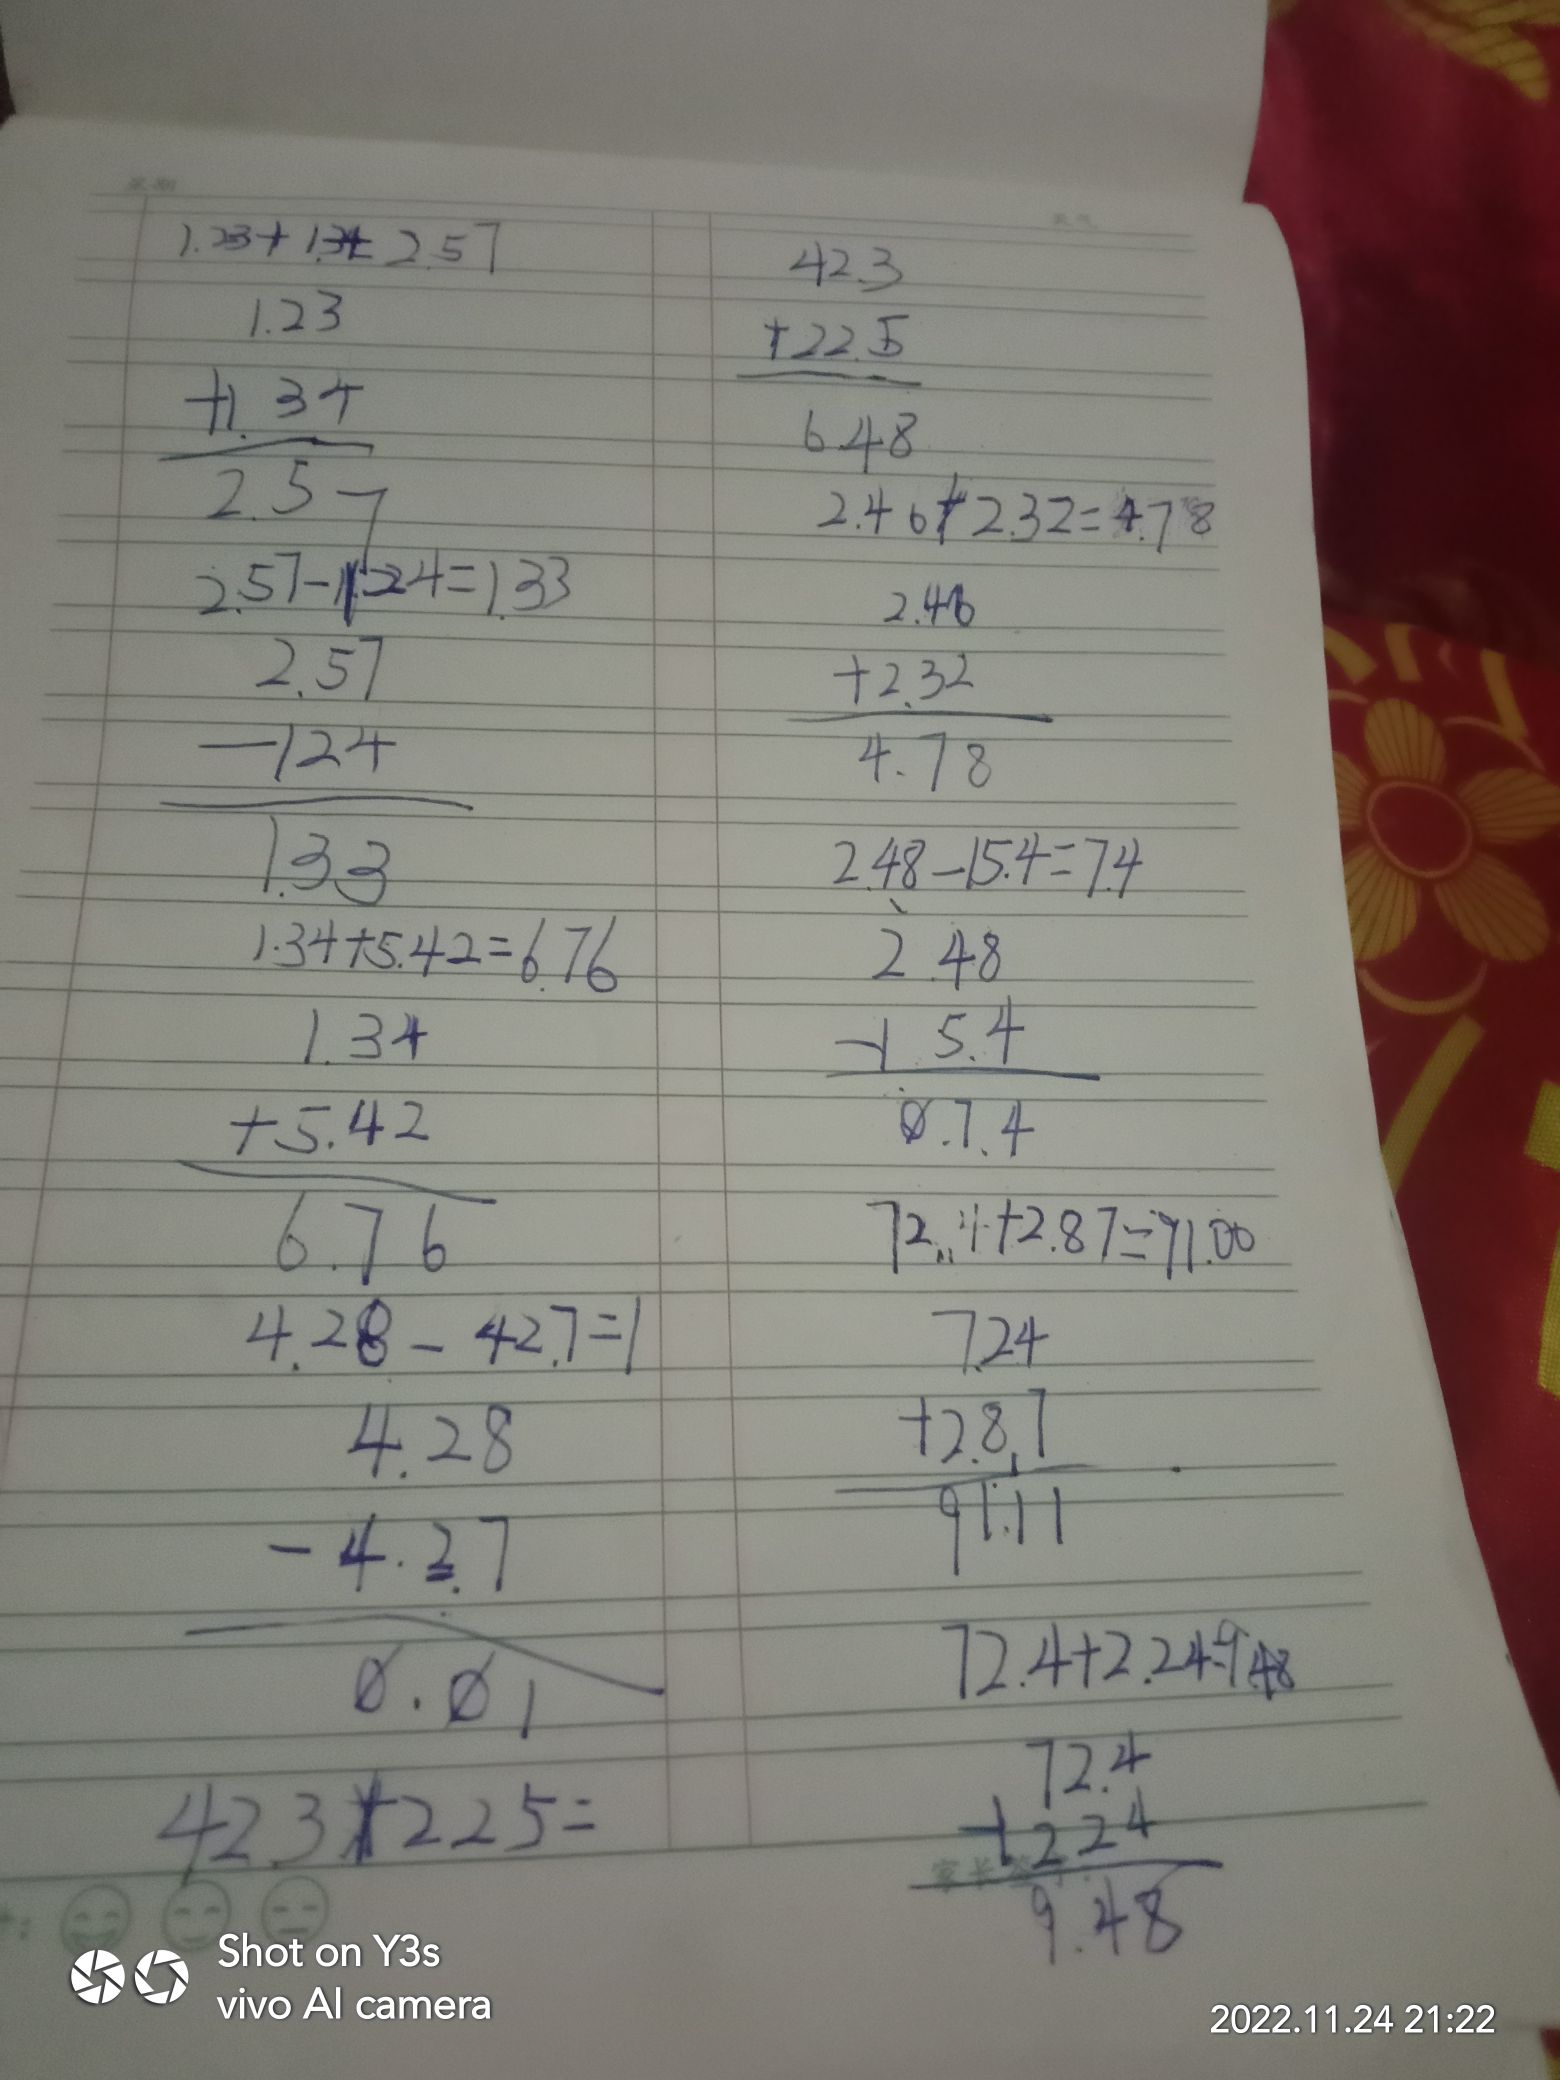 1.23+1.34=2.57
1.23
+1.34
2.57
2.57-1.24=1.33
2.57
-124
1.33
1.34+5.42=6.76
1.34
+5.42
6.76
4.28-42.7=1
4.28
-4.2.7
0.01
42.3+225=
42.3
+22.5
648
2.46+2.32=4.78
2.46
+2.32
4.78
2.48-15.4=7.4
2.48
-15.4
0.7.4
72.4+2.87=91.00
7.24
+28.7
91.11
72.4+2.24=9.48
72.4
+224
9.48
Shot on Y3s
vivo AI camera
2022.11.24 21:22